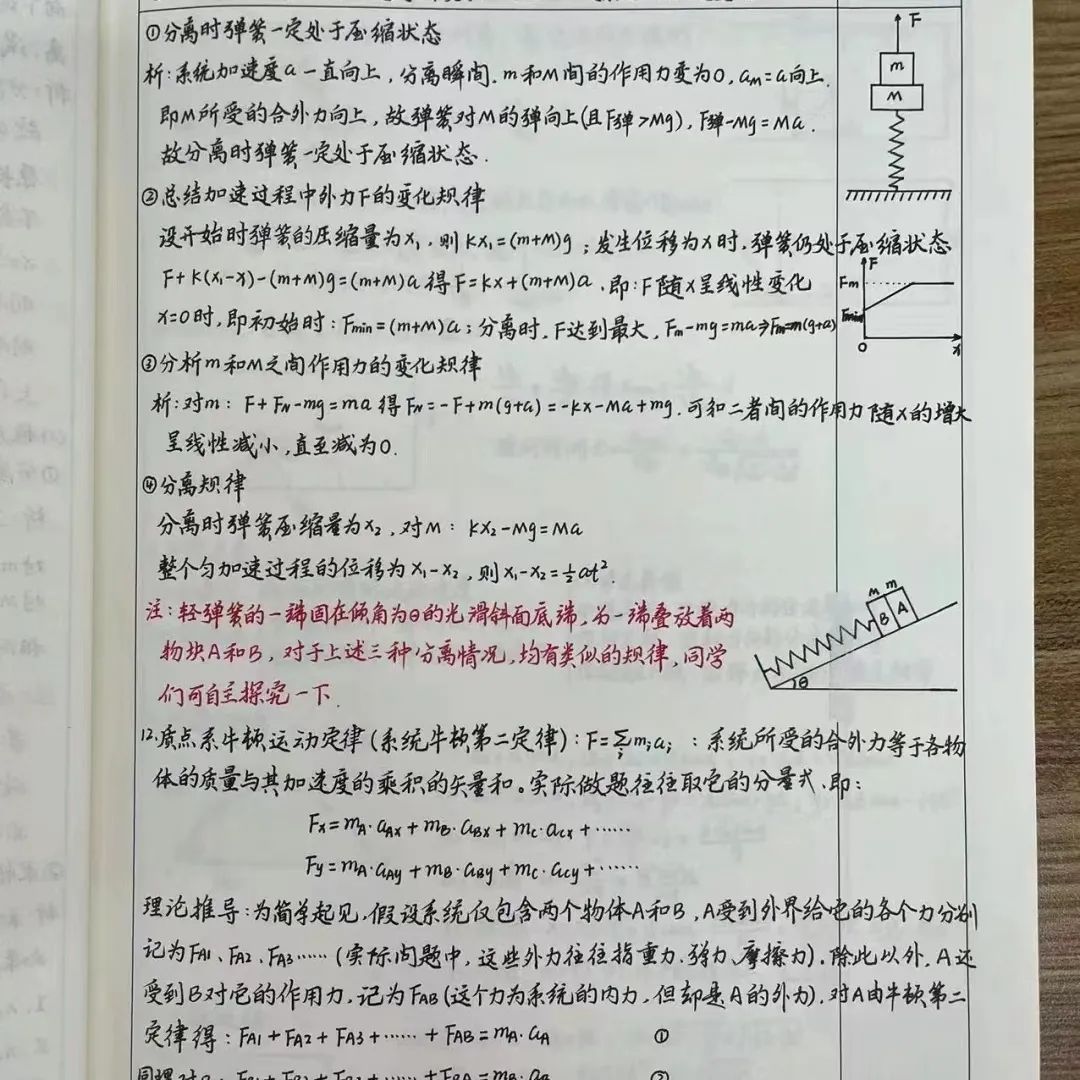 ①分离时弹簧一定处于压缩状态
析:系统加速度a一直向上，分离瞬间.m和M间的作用力变为0，aM=a向上.
即M所受的合外力向上，故弹簧对M的弹向上(且F弹>Mg)，F弹-Mg=Ma.
故分离时弹簧一定处于压缩状态.
②总结加速过程中外力F的变化规律
设开始时弹簧的压缩量为x₁，则kx₁=(m+M)g；发生位移为x时，弹簧仍处于压缩状态
F+k(x₁-x)-(m+M)g=(m+M)a得F=kx+(m+M)a.即:F随x呈线性变化
x=0时，即初始时:Fmin=(m+M)a；分离时，F达到最大，Fm-mg=ma⇒Fm=m(g+a)
③分析m和M之间作用力的变化规律
析:对m: F+FN-mg=ma得FN=-F+m(g+a)=-kx-Ma+mg.可知二者间的作用力随x的增大
呈线性减小，直至减为0.
④分离规律
分离时弹簧压缩量为x₂，对M: kx₂-Mg=Ma
整个匀加速过程的位移为x₁-x₂，则x₁-x₂=½at².
注:轻弹簧的一端固在倾角为θ的光滑斜面底端，另一端叠放着两
物块A和B，对于上述三种分离情况，均有类似的规律，同学
们可自主探究一下.
12.质点系牛顿运动定律(系统牛顿第二定律):F=∑miai :系统所受的合外力等于各物
体的质量与其加速度的乘积的矢量和。实际做题往往取它的分量式.即:
Fx=mA·aAx+mB·aBx+mC·aCx+……
Fy=mA·aAy+mB·aBy+mC·aCy+……
理论推导:为简单起见，假设系统仅包含两个物体A和B，A受到外界给它的各个力分别
记为FA1、FA2、FA3……(实际问题中，这些外力往往指重力、弹力、摩擦力)，除此以外，A还
受到B对它的作用力，记为FAB(这个力为系统的内力，但却是A的外力)，对A由牛顿第二
定律得:FA1+FA2+FA3+……+FAB=mA·aA ①
F
m
M
F
Fm
Fmin
0
x
M m
B A
θ